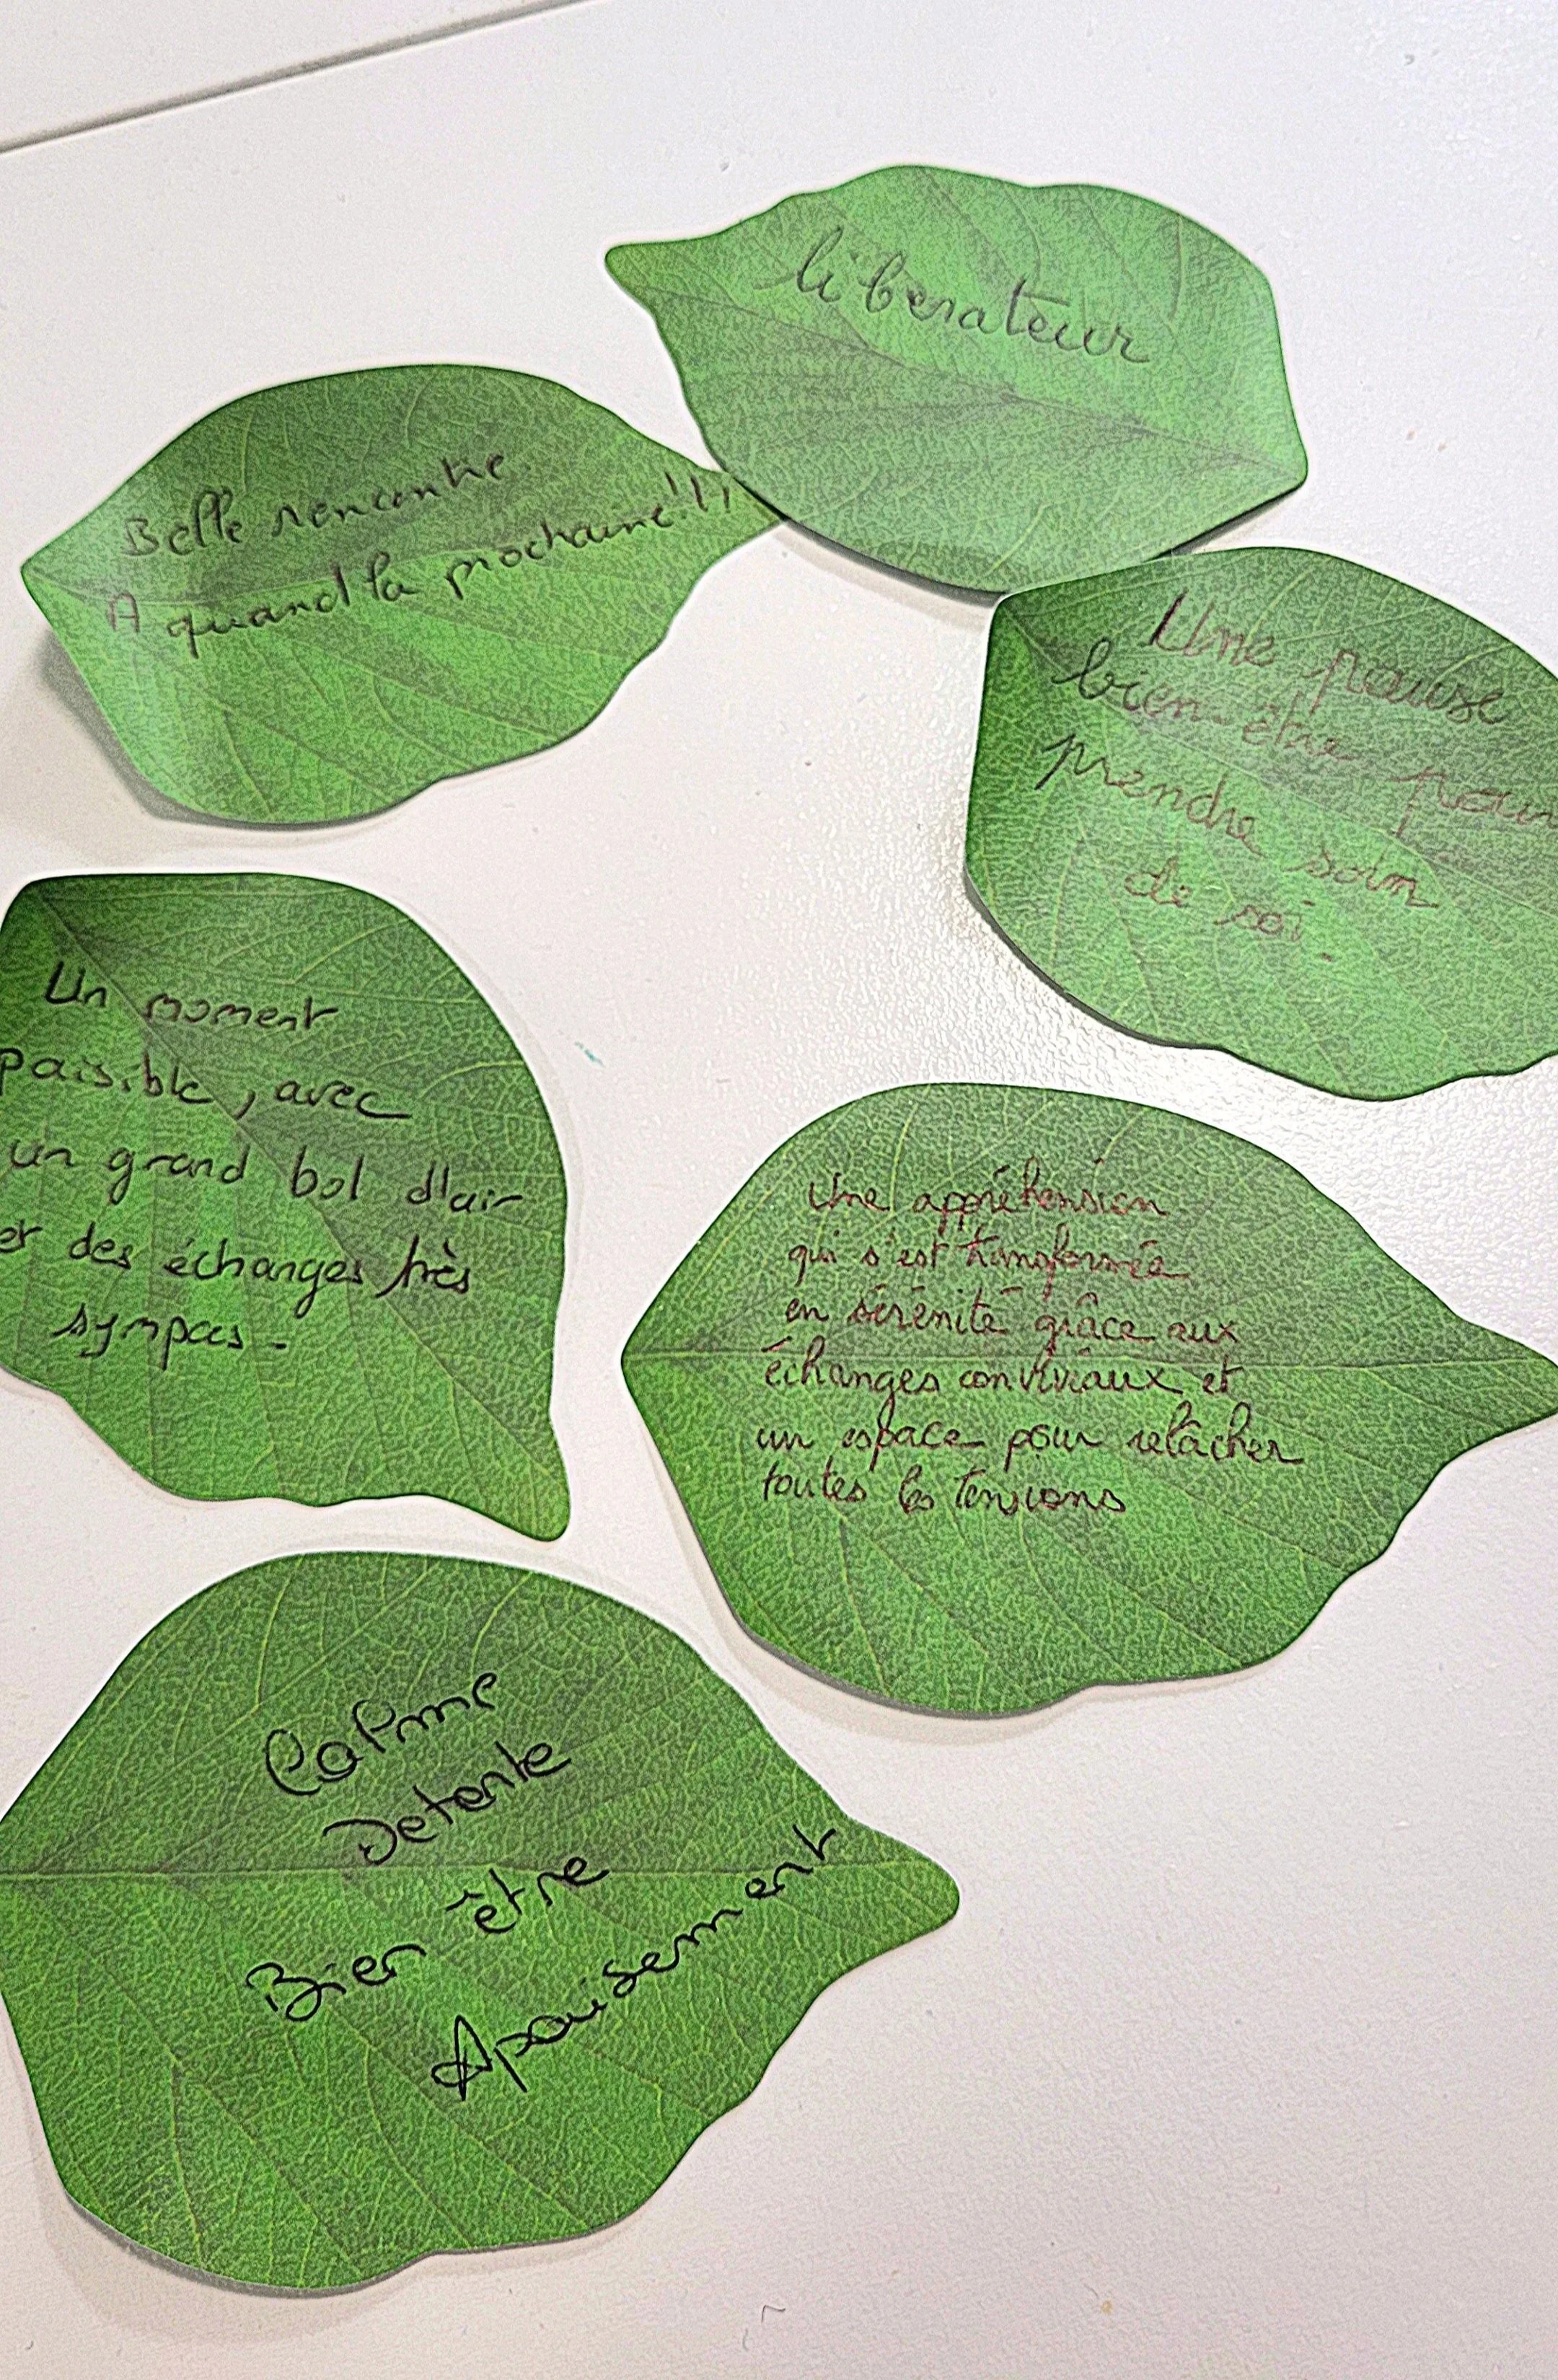 libérateur
Belle rencontre
A quand la prochaine!!!
Une pause
bien-être pour
prendre soin
de soi.
Un moment
paisible, avec
un grand bol d'air
et des échanges très
sympas.
Une appréhension
qui s'est transformée
en sérénité grâce aux
échanges conviviaux et
un espace pour relâcher
toutes les tensions
Calme
Detente
Bien être
Apaisement